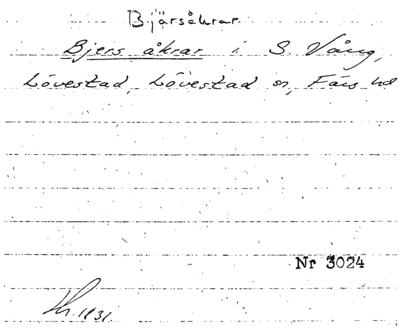 Bjärsåkrar
Bjers åkrar i S. Vång,
Lövestad, Lövestad sn, Färs hd
Nr 3024
1831.